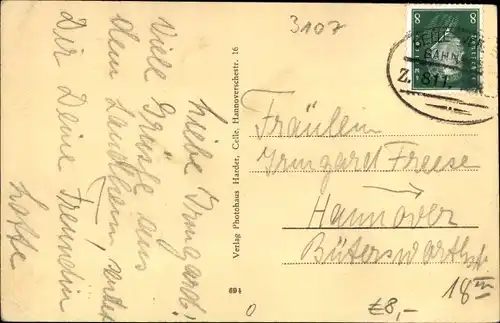 Liebe Irmgard!
Viele Grüße aus
dem Landheim, sendet
Dir Deine Freundin
Lotte
Verlag Photohaus Harder, Celle, Hannoverschestr. 16
694
3107
8 8
BAHN
Z. 811
Fräulein
Irmgard Freese
Hannover
18 III
€8,-
0